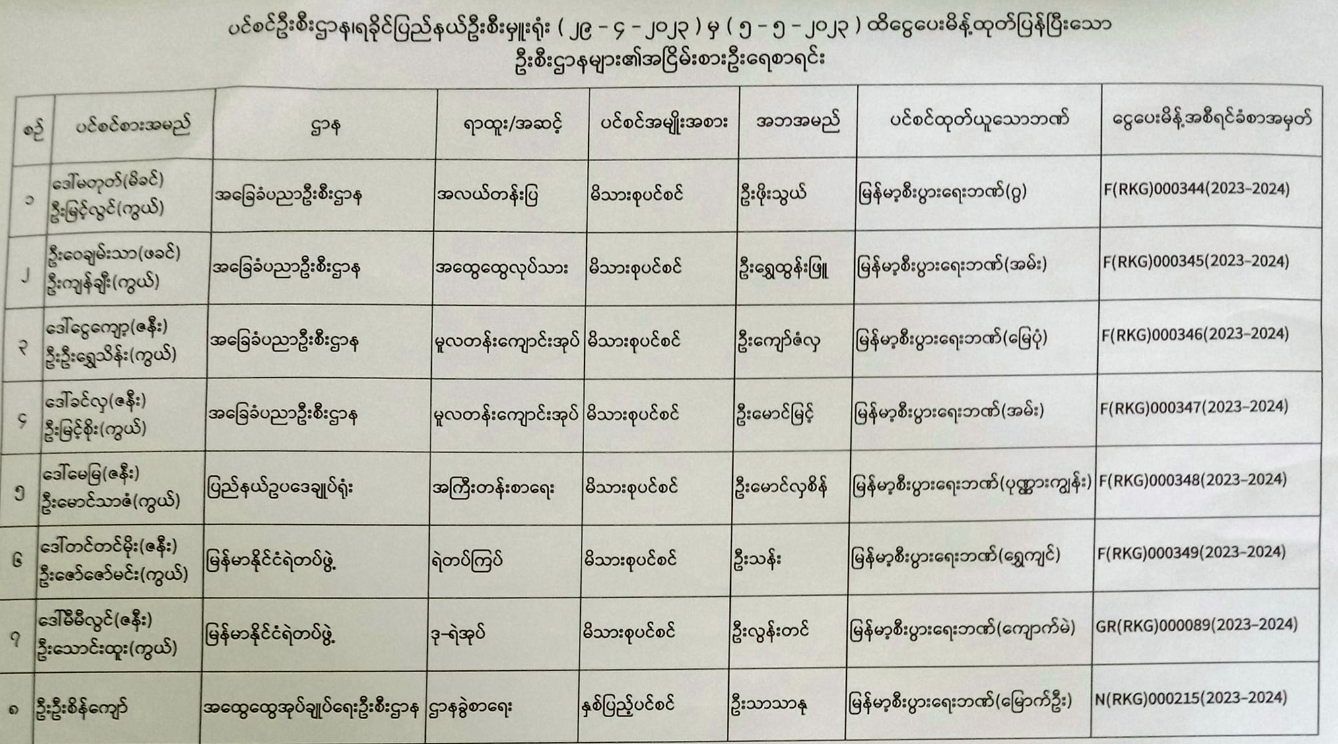 ပင်စင်ဦးစီးဌာန၊ရခိုင်ပြည်နယ်ဦးစီးမှူးရုံး ( ၂၉ - ၄ - ၂၀၂၃ ) မှ ( ၅ - ၅ - ၂၀၂၃ ) ထိငွေပေးမိန့်ထုတ်ပြန်ပြီးသော
ဦးစီးဌာနများ၏အငြိမ်းစားဦးရေစာရင်း
စဉ် ပင်စင်စားအမည် ဌာန ရာထူး/အဆင့် ပင်စင်အမျိုးအစား အဘအမည် ပင်စင်ထုတ်ယူသောဘဏ် ငွေပေးမိန့်အစီရင်ခံစာအမှတ်
၁ ဒေါ်မတုတ်(မိခင်) ဦးမြင့်လွင်(ကွယ်) အခြေခံပညာဦးစီးဌာန အလယ်တန်းပြ မိသားစုပင်စင် ဦးဖိုးသွယ် မြန်မာ့စီးပွားရေးဘဏ်(ဂွ) F(RKG)000344(2023-2024)
၂ ဦးဝေချမ်းသာ(ဖခင်) ဦးကျန်ချီး(ကွယ်) အခြေခံပညာဦးစီးဌာန အထွေထွေလုပ်သား မိသားစုပင်စင် ဦးရွှေထွန်းဖြူ မြန်မာ့စီးပွားရေးဘဏ်(အမ်း) F(RKG)000345(2023-2024)
၃ ဒေါ်ငွေကျော့(ဇနီး) ဦးဦးရွှေသိန်း(ကွယ်) အခြေခံပညာဦးစီးဌာန မူလတန်းကျောင်းအုပ် မိသားစုပင်စင် ဦးကျော်ဇံလှ မြန်မာ့စီးပွားရေးဘဏ်(မြေပုံ) F(RKG)000346(2023-2024)
၄ ဒေါ်ခင်လှ(ဇနီး) ဦးမြင့်စိုး(ကွယ်) အခြေခံပညာဦးစီးဌာန မူလတန်းကျောင်းအုပ် မိသားစုပင်စင် ဦးမောင်မြင့် မြန်မာ့စီးပွားရေးဘဏ်(အမ်း) F(RKG)000347(2023-2024)
၅ ဒေါ်မေမြ(ဇနီး) ဦးမောင်သာဇံ(ကွယ်) ပြည်နယ်ဥပဒေချုပ်ရုံး အကြီးတန်းစာရေး မိသားစုပင်စင် ဦးမောင်လှစိန် မြန်မာ့စီးပွားရေးဘဏ်(ပုဏ္ဏားကျွန်း) F(RKG)000348(2023-2024)
၆ ဒေါ်တင်တင်မိုး(ဇနီး) ဦးဇော်ဇော်မင်း(ကွယ်) မြန်မာနိုင်ငံရဲတပ်ဖွဲ့ ရဲတပ်ကြပ် မိသားစုပင်စင် ဦးသန်း မြန်မာ့စီးပွားရေးဘဏ်(ရွှေကျင်) F(RKG)000349(2023-2024)
၇ ဒေါ်မီမီလွင်(ဇနီး) ဦးသောင်းထူး(ကွယ်) မြန်မာနိုင်ငံရဲတပ်ဖွဲ့ ဒု-ရဲအုပ် မိသားစုပင်စင် ဦးလွန်းတင် မြန်မာ့စီးပွားရေးဘဏ်(ကျောက်မဲ) GR(RKG)000089(2023-2024)
၈ ဦးဦးစိန်ကျော် အထွေထွေအုပ်ချုပ်ရေးဦးစီးဌာန ဌာနခွဲစာရေး နှစ်ပြည့်ပင်စင် ဦးသာသာနု မြန်မာ့စီးပွားရေးဘဏ်(မြောက်ဦး) N(RKG)000215(2023-2024)